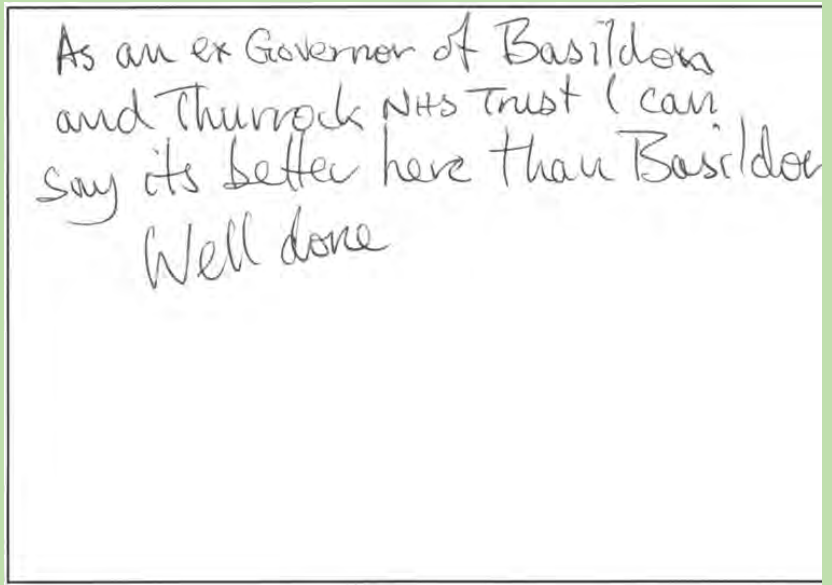 As an ex Governor of Basildon
and Thurrock NHS Trust I can
say its better here than Basildon
Well done